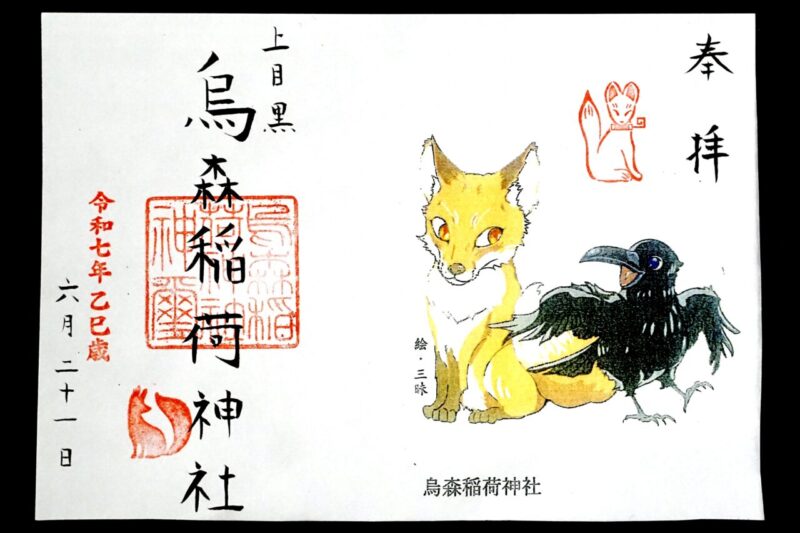 奉拝
絵・三昧
烏森稲荷神社
上目黒
烏森稲荷神社
烏森稲荷神社神璽
令和七年乙巳歳
六月二十一日